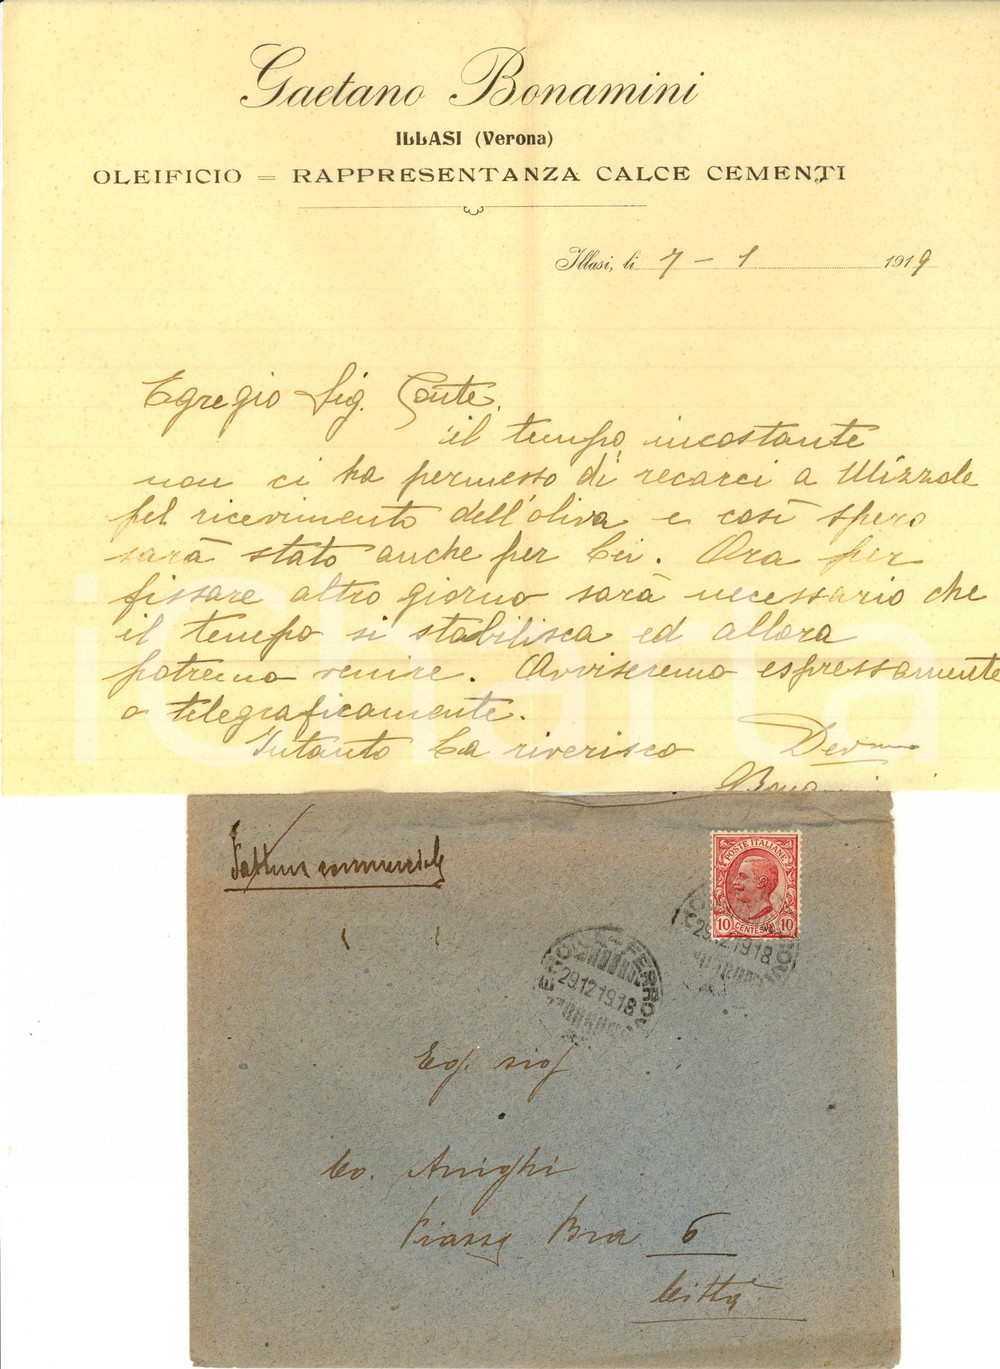 Gaetano Bonamini
ILLASI (Verona)
OLEIFICIO = RAPPRESENTANZA CALCE CEMENTI
Illasi, li 7 - 1 1919
Egregio Sig. Conte,
il tempo incostante
non ci ha permesso di recarci a Mizzole
pel ricevimento dell'oliva e così spero
sarà stato anche per Lei. Ora per
fissare altro giorno sarà necessario che
il tempo si stabilisca ed allora
potremo venire. Avviseremo espressamente
o telegraficamente.
Intanto La riverisco Devmo
GBona
iCharta
Fatture commerciali
POSTE ITALIANE
10 CENTESIMI 10
29.12.1918
FERROV
29.12.1918
Eg. sig
Co. Arrighi
Piazza Bra 6
Città